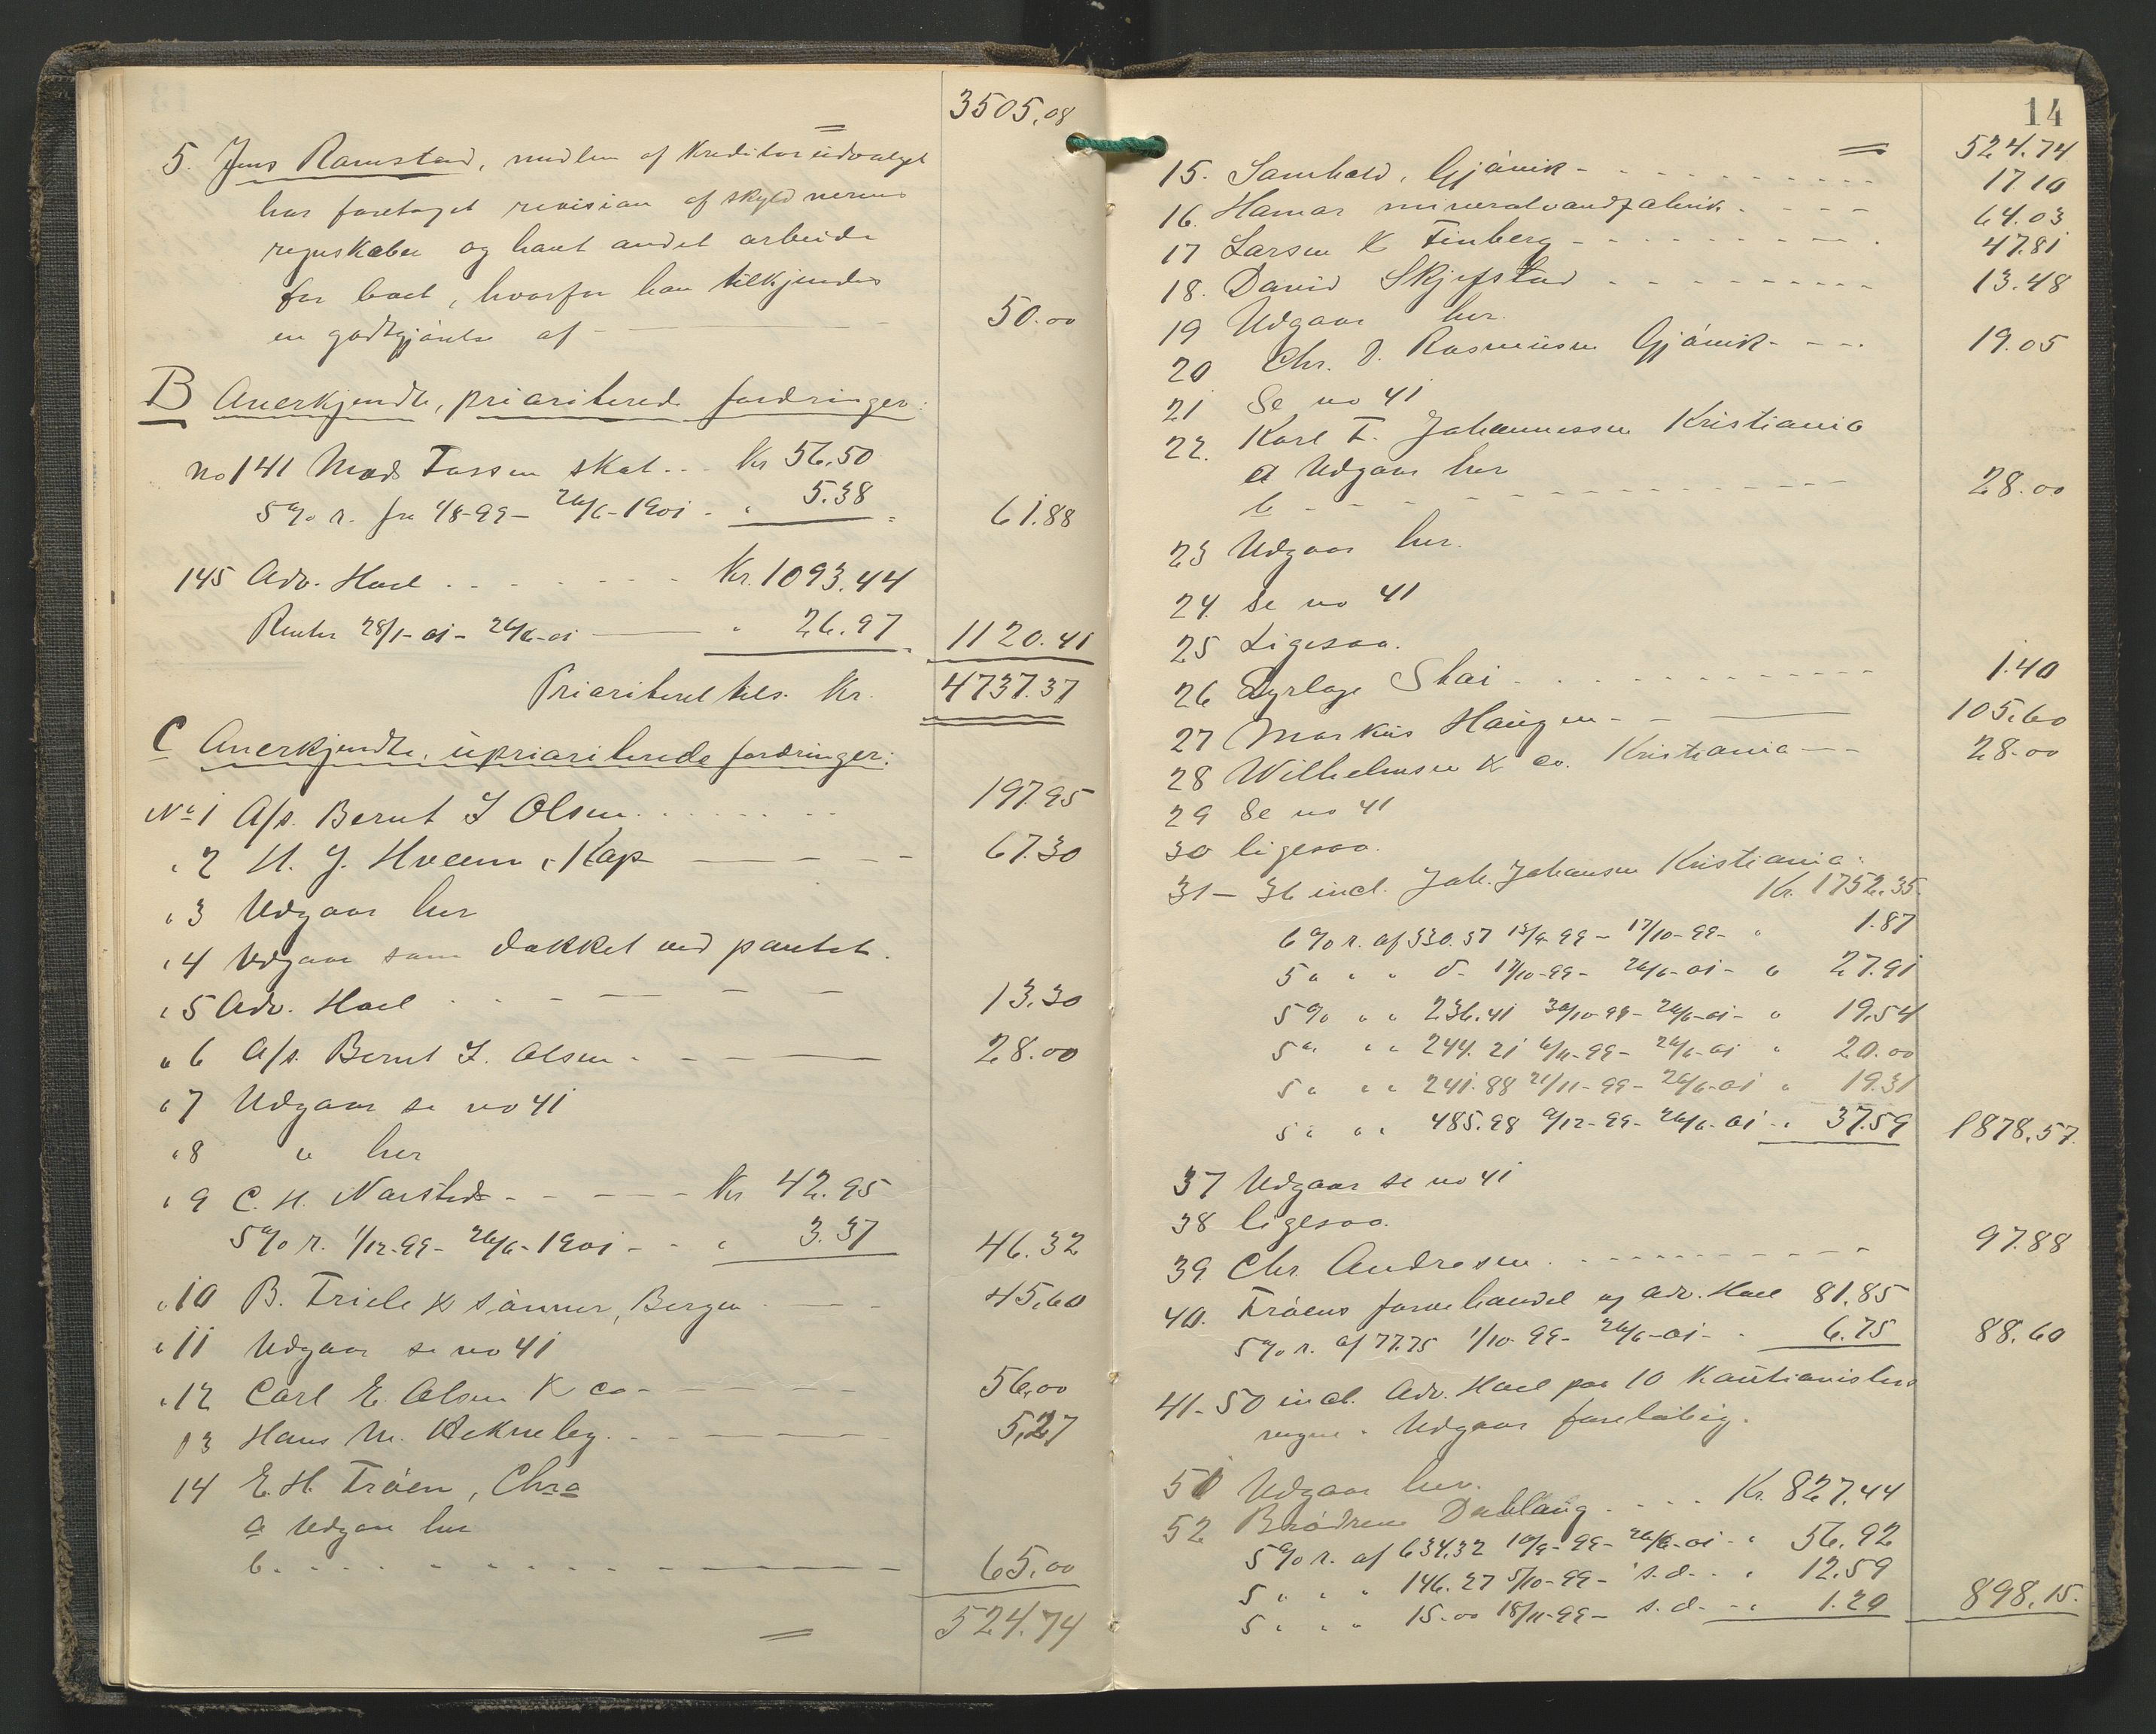 3505,08
5. Jens Ramstad, medlem af Kreditorudvalget
har foretaget revision af skyldnerens
regnskaber og havt andet arbeide
for boet, hvorfor han tilkjendes
en godtgjørelse af 50.00
B Anerkjendte, prioriterede fordringer:
No 141 Mads Fossen skat... Kr 56.50
5% r. fra 1/8-99 - 26/6-1901 - " 5.38 61.88
145 Adv. Hoel . . . . . Kr. 1093.44
Renter 28/1-01 - 26/6-01 " 26.97 1120.41
Prioriteret tils. Kr. 4737.37
C Anerkjendte, uprioriterede fordringer:
No 1 A/s. Bernt I Olsen 197.95
" 2 H. J. Hveem, Kap 67.30
" 3 Udgaar her
" 4 Udgaar som dækket ved pantet.
" 5 Adv. Hoel 13.30
" 6 A/s. Bernt I. Olsen 28.00
" 7 Udgaar se no 41
" 8 " her
" 9 C. H. Narsted Kr 42.95
5% r. 1/12-99 - 26/6-1901 - " 3.37 46.32
" 10 B. Friele & sønner, Bergen 45.60
" 11 Udgaar se no 41
" 12 Carl E. Olsen & Co 56.00
13 Hans M. 5,27
14 E. H. Trøen, Chra
a Udgaar her
b. 65.00
524.74
14
524.74
15. Samhold, Gjøvik 17 10
16 Hamar mineralvandfabrik 64.03
17 Larsen & Finberg 47.81
18. David Skjefstad 13.48
19 Udgaar her.
20 Chr. P. Rasmussen Gjøvik 19.05
21 Se no 41
22. Karl F. Johannessen Kristiania
a Udgaar her
b 28.00
23 Udgaar her.
24. Se no 41
25 Ligesaa.
26 Dyrlæge Skai 1.40
27 Markus Haugen 105.60
28 Wilhelmsen & co. Kristiania 28.00
29 Se no 41
30 ligesaa.
31 - 36 incl. Joh. Johansen Kristiania:
Kr. 1752.35.
6% r. af 330.37 13/9-99 - 17/10-99 - " 1.87
5 " " " d- 17/10-99 - 26/6-01 - " 27.91
5% " " 236.41 30/10-99 - 26/6-01 - " 19.54
5 " " " 244.21 6/11-99 - 26/6-01 " 20.00
5 " " " 241.88 21/11-99 - 26/6-01 " 19.31
5 " " " 485.98 9/12-99 - 26/6-01 - " 37.59 1878,57.
37 Udgaar se no 41
38 ligesaa.
39 Chr. Andresen 97.88
40. Trøens farvehandel og adv. Hoel 81.85
5% r. af 77.75 1/10-99 - 26/6-01 - " 6.75 88.60
41-50 incl. Adv. Hoel paa 10 Kautionisters
vegne. Udgaar foreløbig.
51 Udgaar her.
52 Brødrene Dæhlang . . . . Kr. 827.44
5% r. af 634.32 10/9-99 - 26/6-01 - " 56.92
5 " " " 146.27 5/10-99 - s.d. - " 12.59
5 " " " 15.00 18/11-99 - s.d. - " 1.20 898.15.